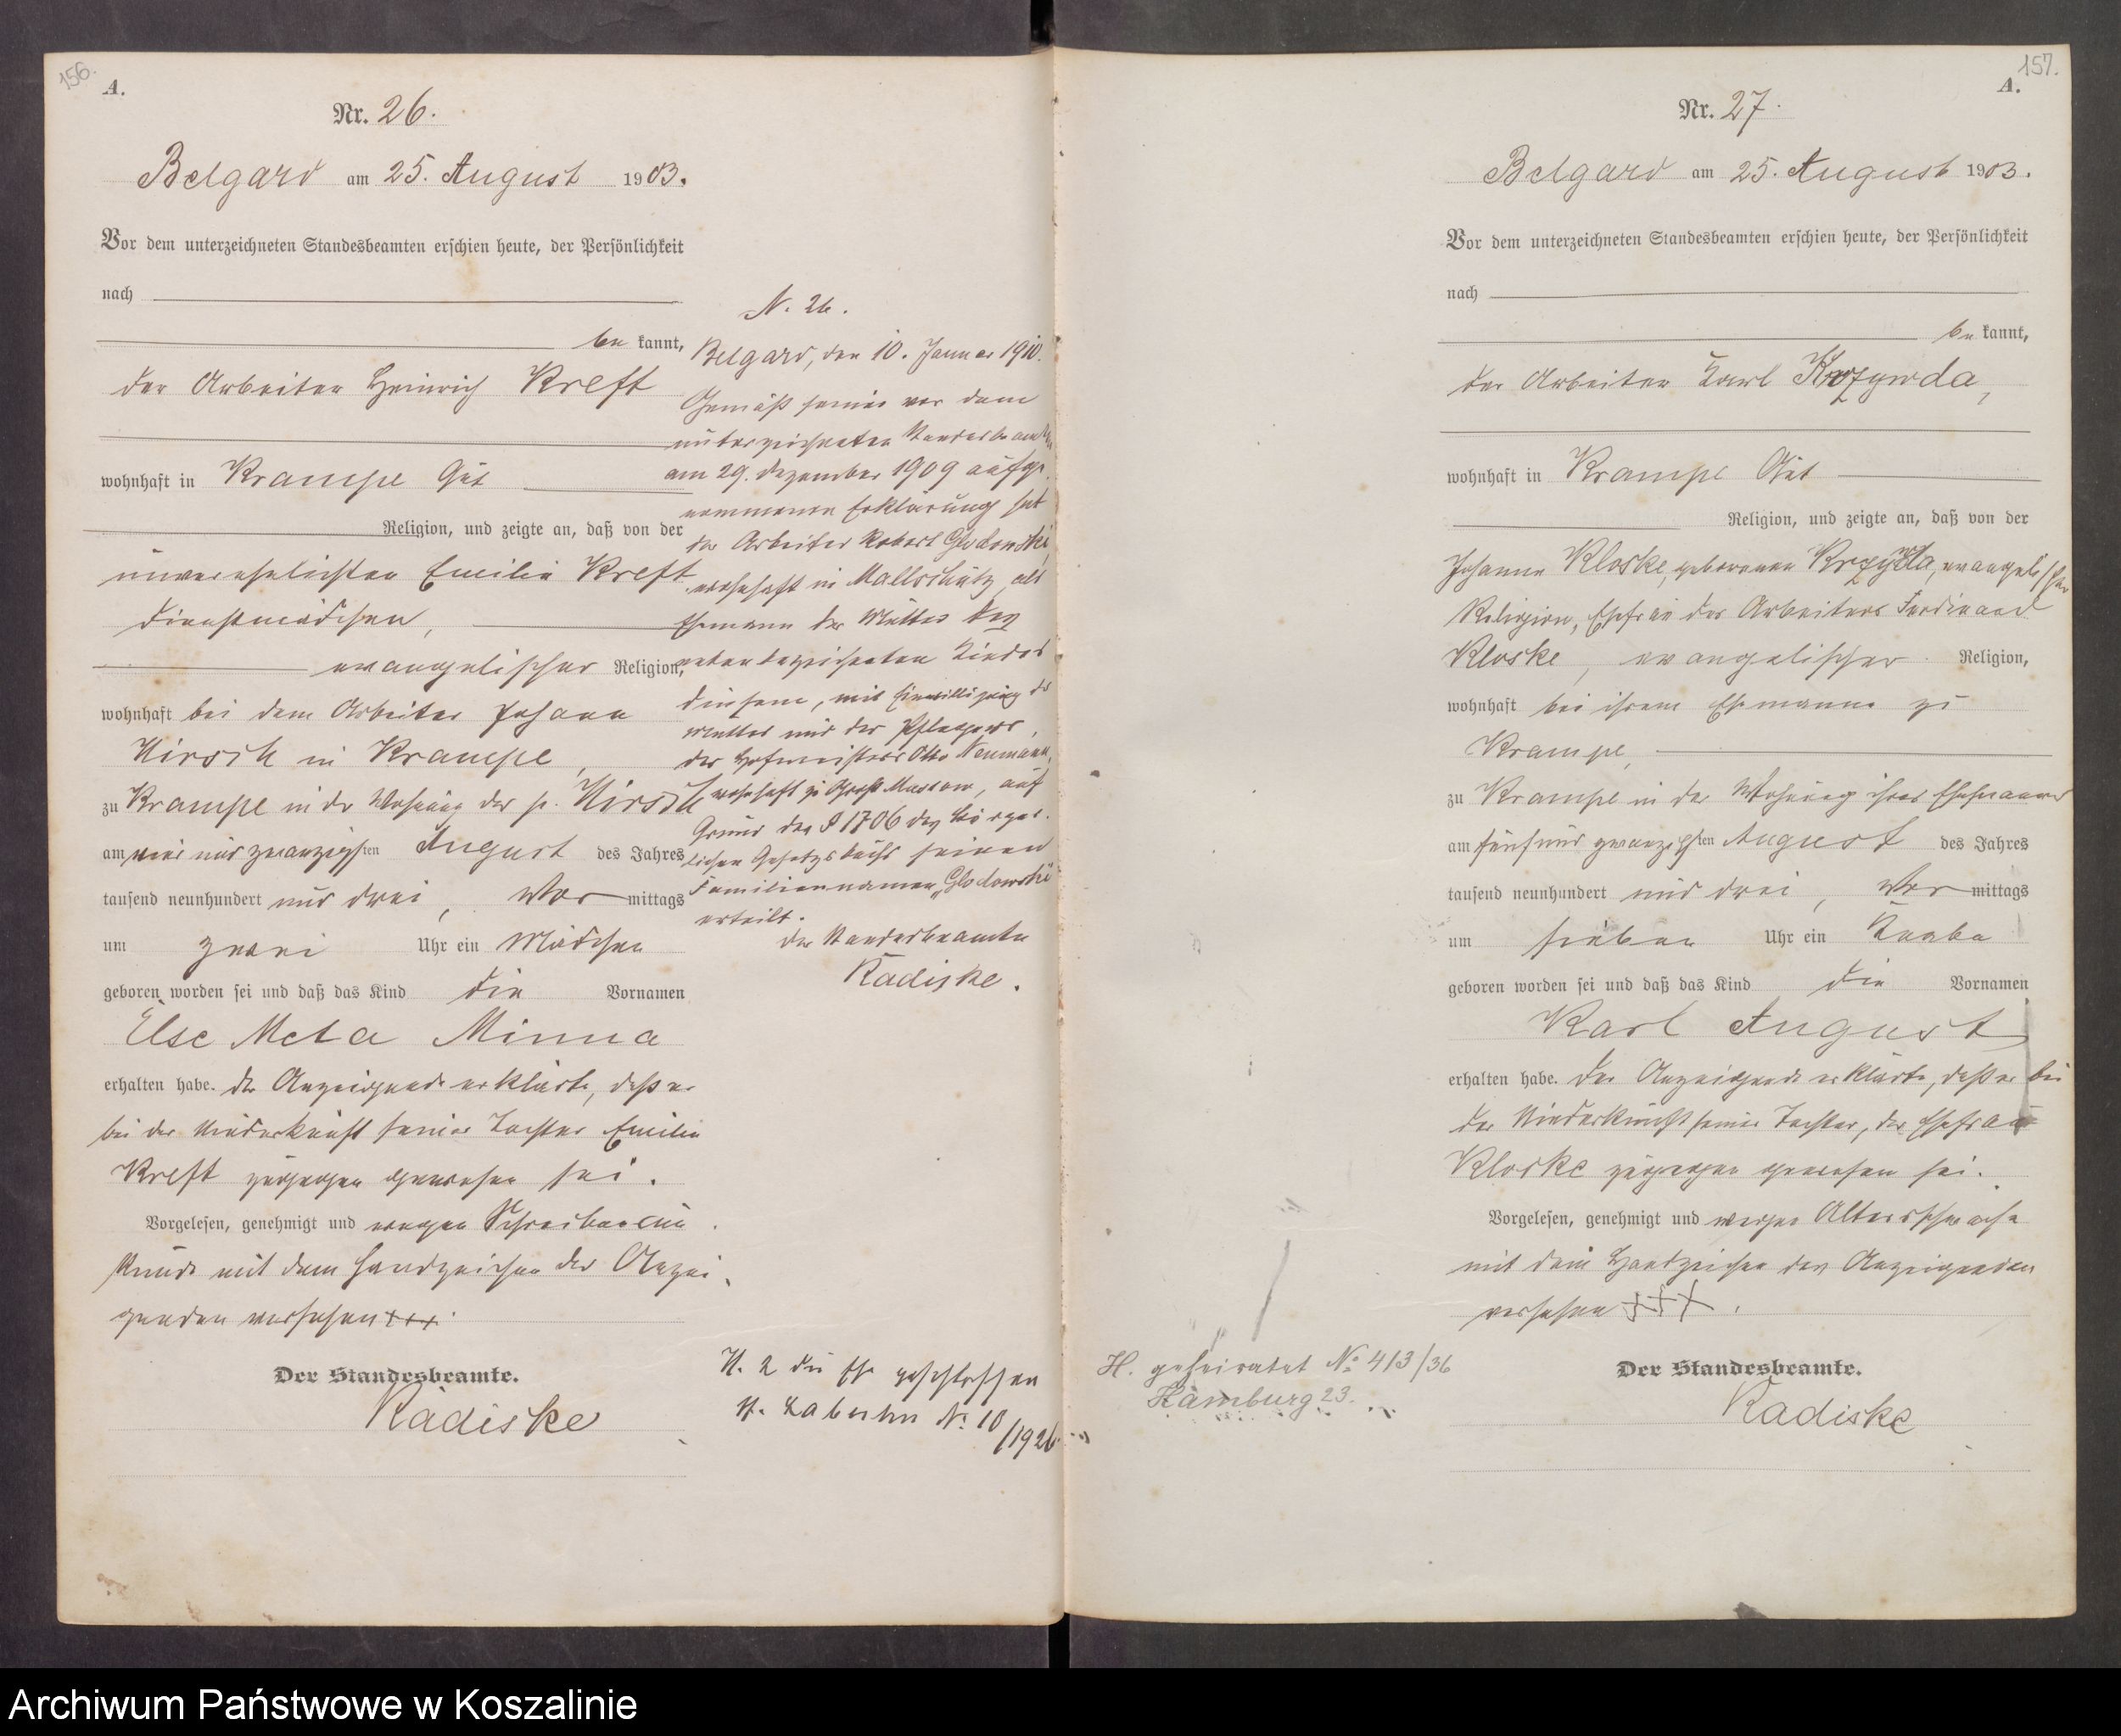 156.
A.
Nr. 26.
Belgard am 25. August 1903.
Vor dem unterzeichneten Standesbeamten erschien heute, der Persönlichkeit
nach
be kannt,
der Arbeiter Heinrich Kreft
wohnhaft in Krampe Gut
Religion, und zeigte an, daß von der
unverehelichten Emilie Kreft
Dienstmädchen,
evangelischer Religion,
wohnhaft bei dem Arbeiter Johann
Kirsch in Krampe,
zu Krampe in der Wohnung des p. Kirsch
am vier und zwanzigsten August des Jahres
tausend neunhundert und drei, Vor mittags
um zwei Uhr ein Mädchen
geboren worden sei und daß das Kind die Vornamen
Else Meta Minna
erhalten habe. Der Anzeigende erklärte, daß er
bei der Niederkunft seiner Tochter Emilie
Kreft zugegen gewesen sei.
Vorgelesen, genehmigt und wegen Schreibensun
kunde mit dem Handzeichen des Anzei-
genden versehen +++.
Der Standesbeamte.
Radiske
N. 26.
Belgard, den 10. Januar 1910.
Gemäß seiner vor dem
unterzeichneten Standesbeamten
am 29. Dezember 1909 aufge-
nommenen Erklärung hat
der Arbeiter Robert Glodowski,
wohnhaft in Mallschütz, als
Ehemann der Mutter des
nebenbezeichneten Kindes
diesem, mit Einwilligung der
Mutter und des Pflegers,
des Hofmeisters Otto Neumann,
wohnhaft zu Groß Massow, auf
Grund des § 1706 des Bürger-
lichen Gesetzbuchs seinen
Familiennamen „Glodowski"
erteilt.
Der Standesbeamte
Radiske.
H. 2 die Ehe geschlossen
St. Labuhn No. 10
/1926
157.
A.
Nr. 27.
Belgard am 25. August 1903.
Vor dem unterzeichneten Standesbeamten erschien heute, der Persönlichkeit
nach
be kannt,
der Arbeiter Karl Krzywda,
wohnhaft in Krampe Gut
Religion, und zeigte an, daß von der
Johanne Kloske, geborenen Krzywda, evangelischer
Religion, Ehefrau des Arbeiters Ferdinand
Kloske, evangelischer Religion,
wohnhaft bei ihrem Ehemanne zu
Krampe,
zu Krampe in der Wohnung ihres Ehemannes
am fünf und zwanzigsten August des Jahres
tausend neunhundert und drei, Vor mittags
um sieben Uhr ein Knabe
geboren worden sei und daß das Kind die Vornamen
Karl August
erhalten habe. Der Anzeigende erklärte, daß er bei
der Niederkunft seiner Tochter, der Ehefrau
Kloske zugegen gewesen sei.
Vorgelesen, genehmigt und wegen Altersschwäche
mit dem Handzeichen des Anzeigenden
versehen +++.
Der Standesbeamte.
Radiske
H. geheiratet No 413/36
Hamburg 23.
Archiwum Państwowe w Koszalinie